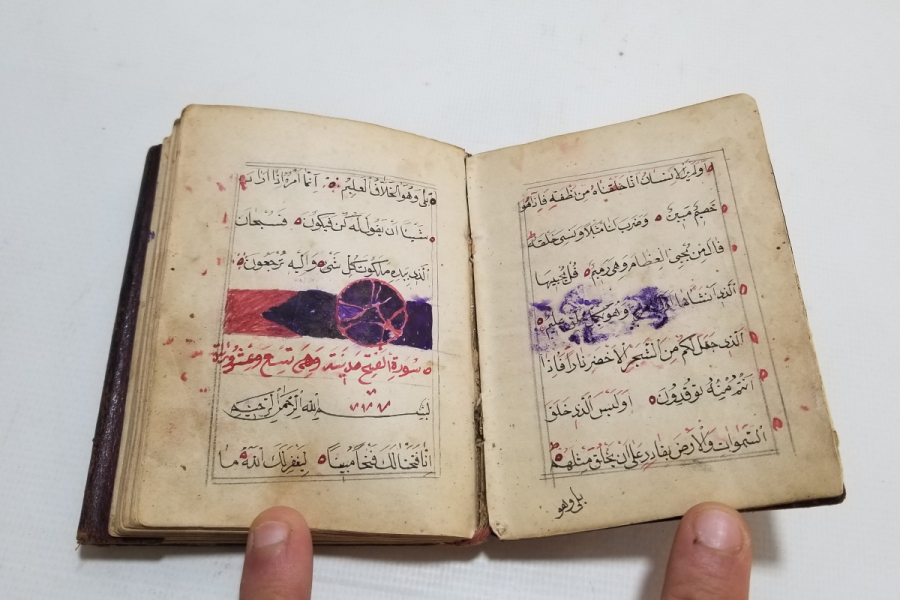 اولم ير الانسان انا خلقناه من نطفه فاذا هو
خصيم مبين وضرب لنا مثلا ونسى خلقه
قال من يحيى العظام وهى رميم قل يحييها
الذى انشاها وهو بكل خلق عليم
الذى جعل لكم من الشجر الاخضر نارا فاذا
انتم منه توقدون اوليس الذى خلق
السموات والارض بقادر على ان يخلق مثلهم
بلى وهو
بلى وهو الخلاق العليم انما امره اذا اراد
شيئا ان يقول له كن فيكون فسبحان
الذى بيده ملكوت كل شئ واليه ترجعون
سورة الفتح مدينة وهى تسع وعشرون اية
بسم الله الرحمن الرحيم
انا فتحنا لك فتحا مبينا ليغفر لك الله ما